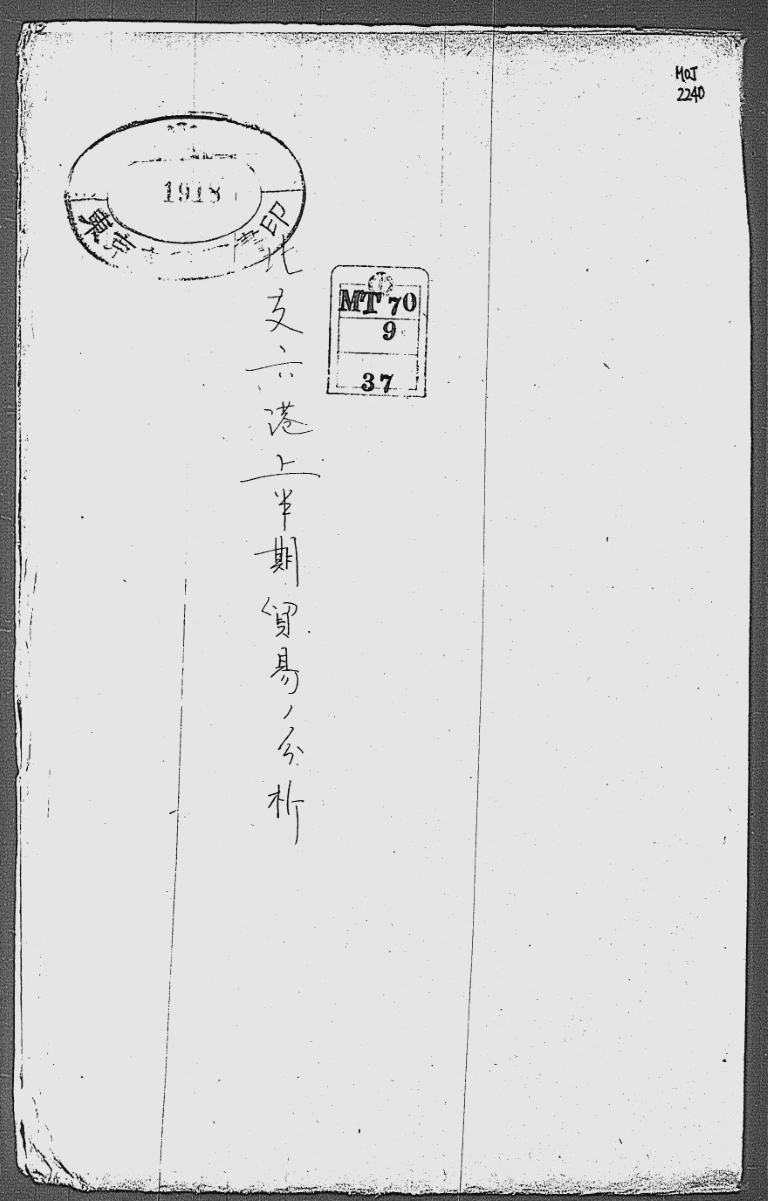 MOJ
2240
1918
東京 印
MT 70
9
37
北支六港上半期貿易ノ分析